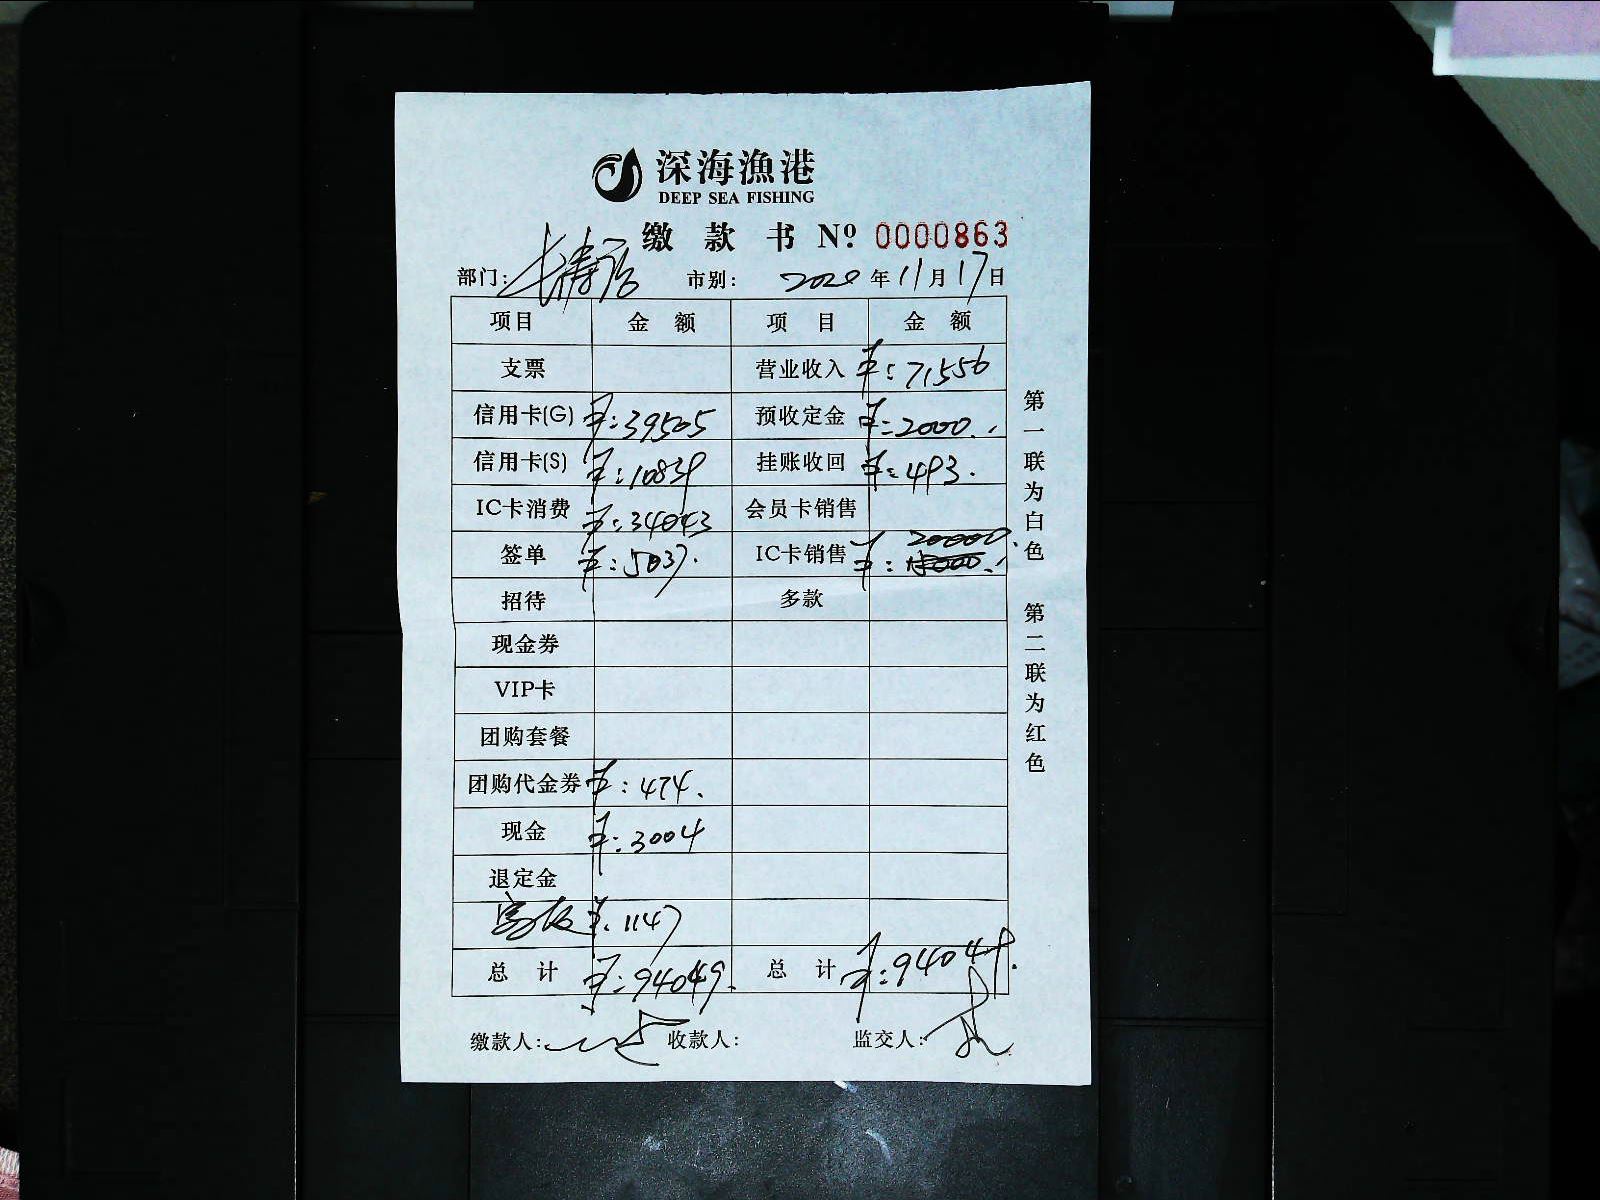 深海漁港
DEEP SEA FISHING
缴款书 Nº 0000863
部门: 长寿 市别: 2020年11月17日
项目 金额 项目 金额
支票 营业收入 ¥:71556
信用卡(G) ¥:39505 预收定金 ¥:2000.
信用卡(S) ¥:10839 挂账收回 ¥:493.
IC卡消费 ¥:34043 会员卡销售
签单 ¥:5037. IC卡销售 ¥:20000.
招待 多款
现金券
VIP卡
团购套餐
团购代金券 ¥:474.
现金 ¥:3004
退定金
¥.1147
总计 ¥:94049. 总计 ¥:94049.
缴款人: 收款人: 监交人:
第一联为白色 第二联为红色